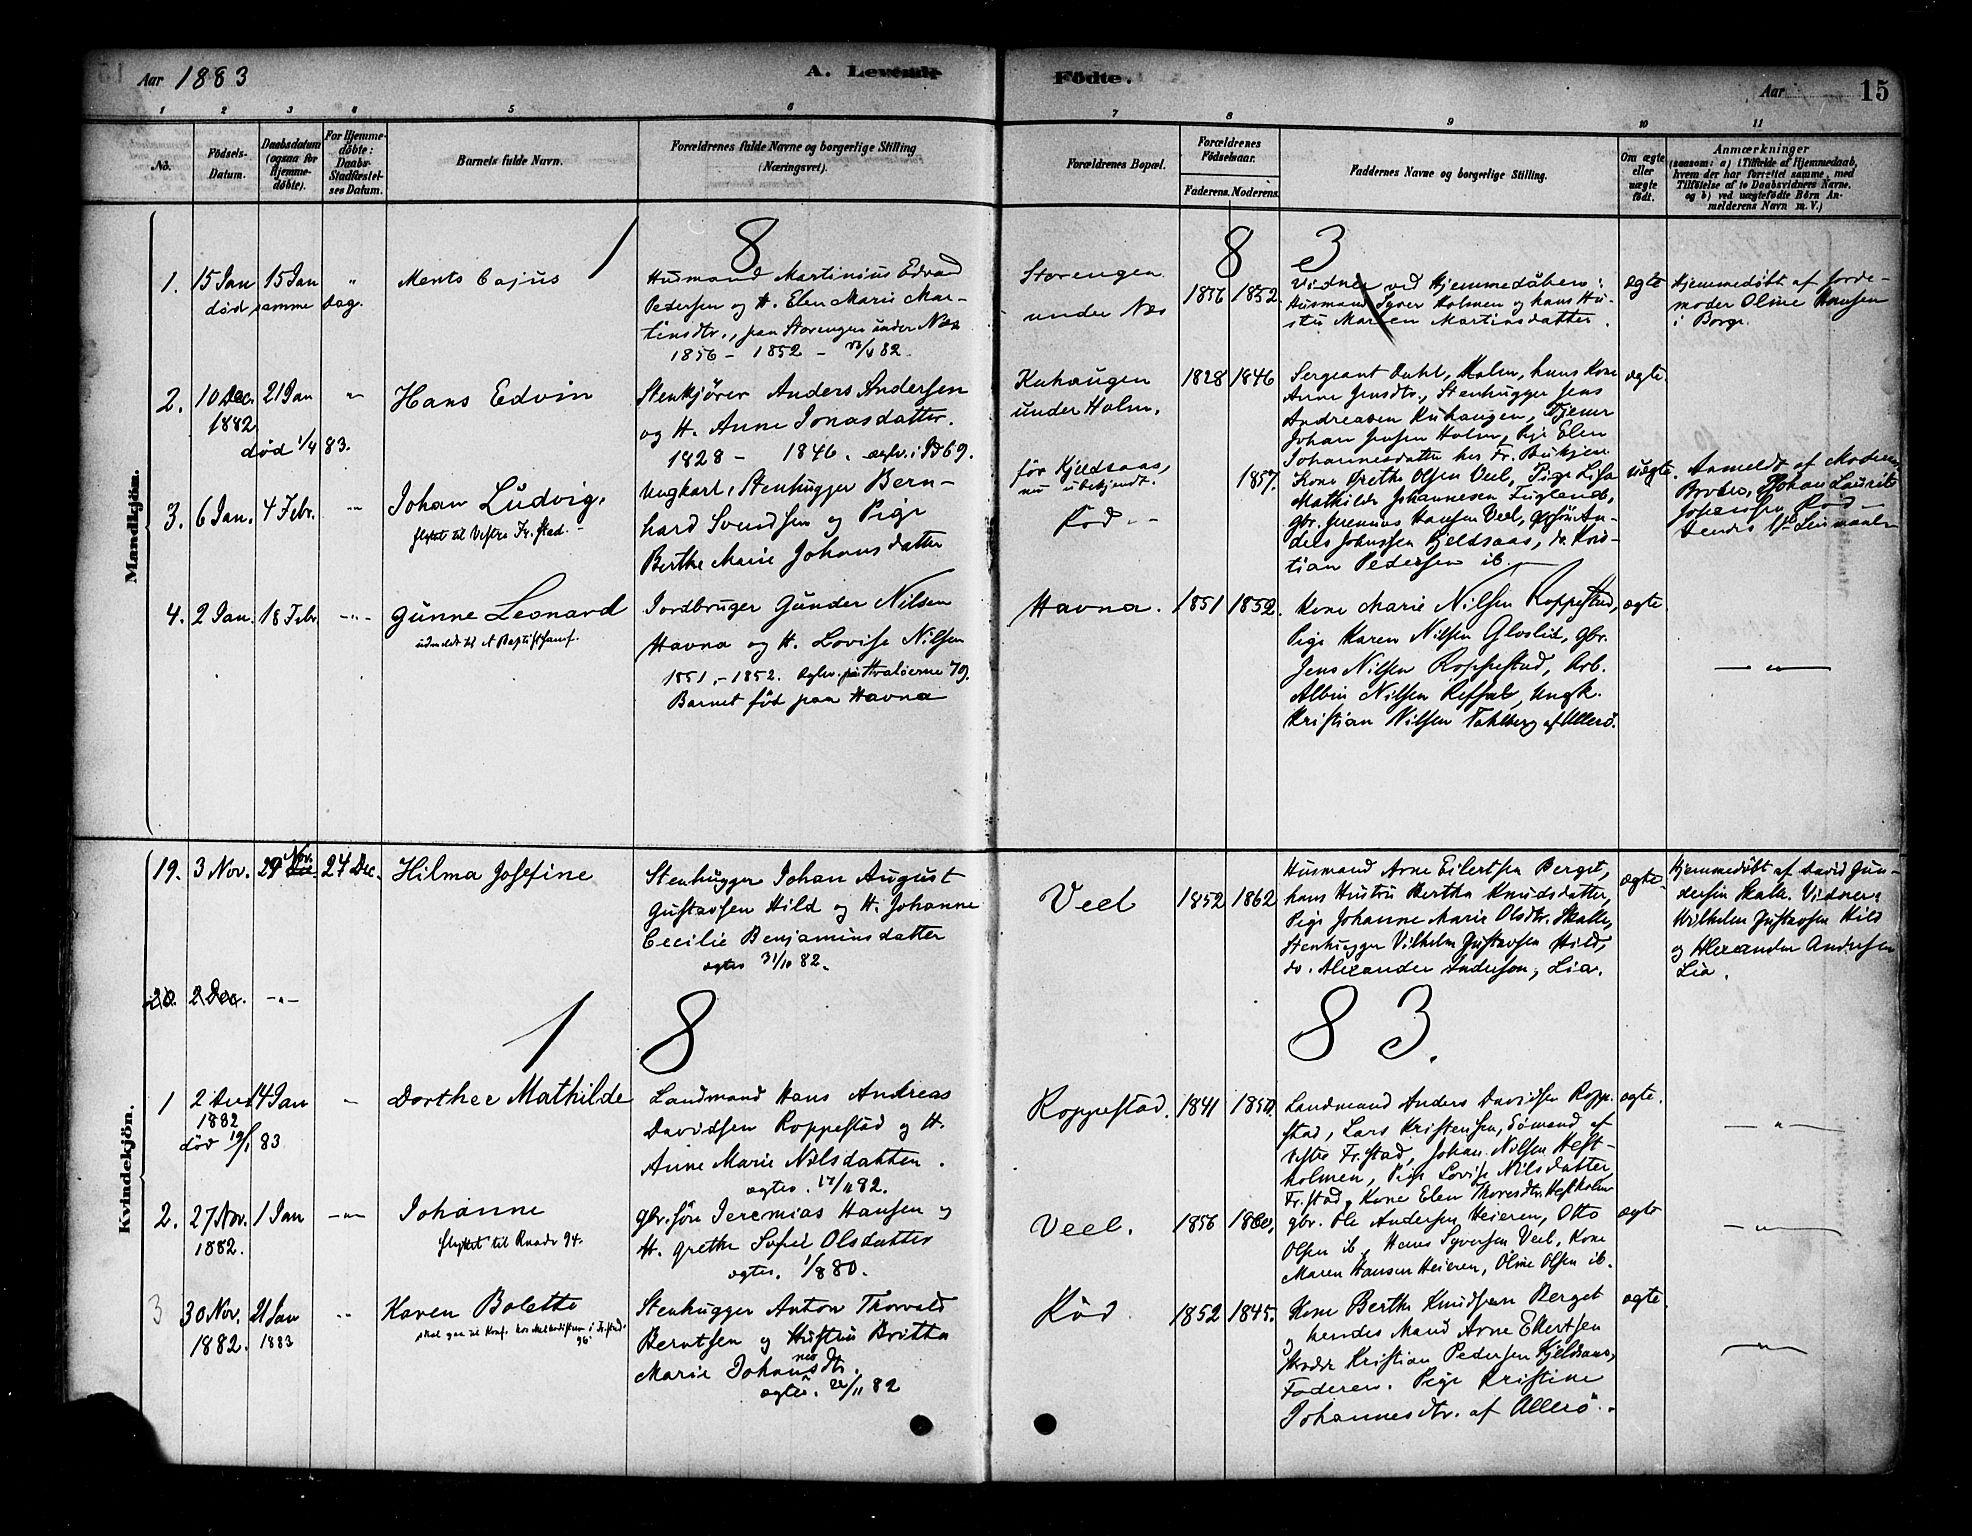 Aar 1883
A. Levende
Födte.
Aar
15
1 2 3 4 5 6 7 8 9 10 11
No.
Födsels-
Datum.
Daabsdatum
(ogsaa for
Hjemme-
döbte).
For Hjemme-
döbte:
Daabs-
Stadfæstel-
ses Datum.
Barnets fulde Navn.
Forældrenes fulde Navne og borgerlige Stilling
(Næringsvei).
Forældrenes Bopæl.
Forældrenes
Födselsaar.
Faderens. Moderens.
Faddernes Navne og borgerlige Stilling.
Om ægte
eller
uægte
födt.
Anmærkninger
(saasom: a) i Tilfælde af Hjemmedaab,
hvem der har forrettet samme, med
Tilföielse af to Daabsvidners Navne,
og b) ved uægtefödte Börn An-
melderens Navn m. V.)
Mandkjön.
1 8 8 3
1. 15 Jan 15 Jan "
död samme Dag.
Ments Cajus
Husmand Martinius Edvad
Pedersen og H. Elen Marie Mar-
tinsdtr., paa Storengen under Næs
1856 - 1852 -
Storengen
under Næs
1856 1852.
Vidner ved Hjemmedåben:
Husmand Syver Holmen og hans Hu-
stu Maren Martinsdatter.
ægte
Hjemmedöbt af Jorde-
moder Oline Hansen
i Borge.
2. 10 Dec. 21 Jan "
1882
död 1/4 83.
Hans Edvin
Stenkjörer Anders Andersen
og H. Anne Jonasdatter.
1828 - 1846.
Kuhaugen
under Holm.
1828 1846
Sergeant Dahl, Holm, hans Kone
Anne Jensdtr., Stenhugger Jens
Andreasen Kuhaugen, Tjener
Johan Jensen Holm, Pige Elen
Johannesdatter hos Fr.
ægte.
3. 6 Jan. 4 Febr. "
Johan Ludvig.
flyttet til Vestre Fr.stad.
Ungkarl, Stenhugger Bern-
hard Svendsen og Pige
Berthe Marie Johansdatter
för Kjeldsaas,
nu ubekjendt.
Röd. -
1857.
Kone Grethe Olsen Veel, Pige Lisa
Mathilde Johannesen Fuglevik,
gbr. Jeremias Hansen Veel, gbrsön An-
ders Johnssen Kjeldsaas, do. Kris-
tian Pedersen ib.
uægte.
Anmeldt af Moderens
Broder, Johan Laurits
Johansen Röd -
4. 2 Jan. 18 Febr. - " -
Gunne Leonard
udmeldt til Baptistsamf.
Jordbruger Gunder Nilsen
Havna og H. Lovise Nilsen
1851. - 1852. Ægtev. paa Hvaløerne 79.
Barnet föd paa Havna
Havna.
1851 1852.
Kone Marie Nilsen Roppestad,
Pige Karen Nilsen Gloslid, gbr.
Jens Nilsen Roppestad, Arb.
Albin Nilsen Reffsal, Ungk.
Kristian Nilsen Tahlberg af Allerö.
ægte.
- " -
Kvindekjön.
19. 3 Nov. 29 Nov. 24 Dec.
Hilma Josefine
Stenhugger Johan August
Gustavsen Hild og H. Johanne
Cecilie Benjaminsdatter
ægtev 31/10 82.
Veel
1852 1862
Husmand Arne Eilertsen Berget,
hans Hustru Berthe Knudsdatter,
Pige Johanne Marie Olsdtr. Skalle,
Stenhugger Vilhelm Gustavsen Hild,
do. Alexander Anderson, Lia.
ægte.
Hjemmedöbt af David Gun-
dersen Skalle. Vidner:
Wilhelm Gustavsen Hild
og Alexander Andersen
Lia.
20. 2 Dec. - " -
1 8 8 3.
1 14 Jan "
1882
död 83
Dorthee Mathilde
Landmand Hans Andreas
Davidsen Roppestad og H.
Anne Marie Nilsdatter.
ægtev. 17/11 82.
Roppestad.
1841
Landmand Anders Davidsen Roppe-
stad, Lars Kristensen, Sömand af
Vestre Fr.stad, Johan Nilsen Heft-
holmen, Pige Lovise Nilsdatter
Fr.stad, Kone Elen Thoresdtr. Heftholm
ægte.
- " -
2. 27 Nov. 1 Jan - " -
1882.
Johanne
flyttet til Raade 94.
gbr.sön Jeremias Hansen og
H. Grethe Sofie Olsdatter
ægtev. 1/8 80.
Veel.
1856 1860.
gbr. Ole Andersen Heieren, Otto
Olsen ib, Hans Syversen Veel, Kone
Maren Hansen Heieren, Oline Olsen ib.
ægte
- " -
3 30 Nov. 21 Jan "
1882. 1883
Karen Bolette
skal gaa til Konf. hos Methodisterne i Fr.stad.
96.
Stenhugger Anton Thorvald
Berntsen og Hustru Britha
Marie Johannesdtr.
ægtev. 22/11 82
Röd.
1852 1845.
Kone Berthe Knudsen Berget
og hendes Mand Arne Eilertsen
Kristian Pedersen Kjeldsaas,
Faderen. Pige Kristine
Johannesdtr. af Allerö.
ægte.
- " -